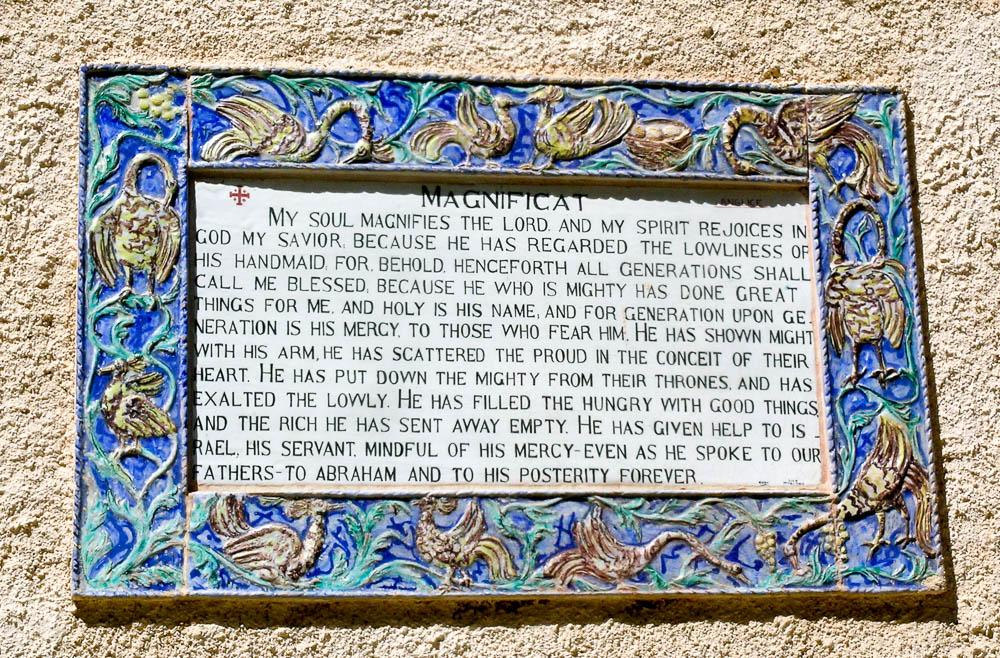 MAGNIFICAT
ANGLICE
MY SOUL MAGNIFIES THE LORD. AND MY SPIRIT REJOICES IN
GOD MY SAVIOR, BECAUSE HE HAS REGARDED THE LOWLINESS OF
HIS HANDMAID, FOR, BEHOLD, HENCEFORTH ALL GENERATIONS SHALL
CALL ME BLESSED, BECAUSE HE WHO IS MIGHTY HAS DONE GREAT
THINGS FOR ME, AND HOLY IS HIS NAME, AND FOR GENERATION UPON GE-
NERATION IS HIS MERCY, TO THOSE WHO FEAR HIM. HE HAS SHOWN MIGHT
WITH HIS ARM, HE HAS SCATTERED THE PROUD IN THE CONCEIT OF THEIR
HEART. HE HAS PUT DOWN THE MIGHTY FROM THEIR THRONES, AND HAS
EXALTED THE LOWLY. HE HAS FILLED THE HUNGRY WITH GOOD THINGS
AND THE RICH HE HAS SENT AWAY EMPTY. HE HAS GIVEN HELP TO IS-
RAEL, HIS SERVANT, MINDFUL OF HIS MERCY-EVEN AS HE SPOKE TO OUR
FATHERS-TO ABRAHAM AND TO HIS POSTERITY FOREVER.